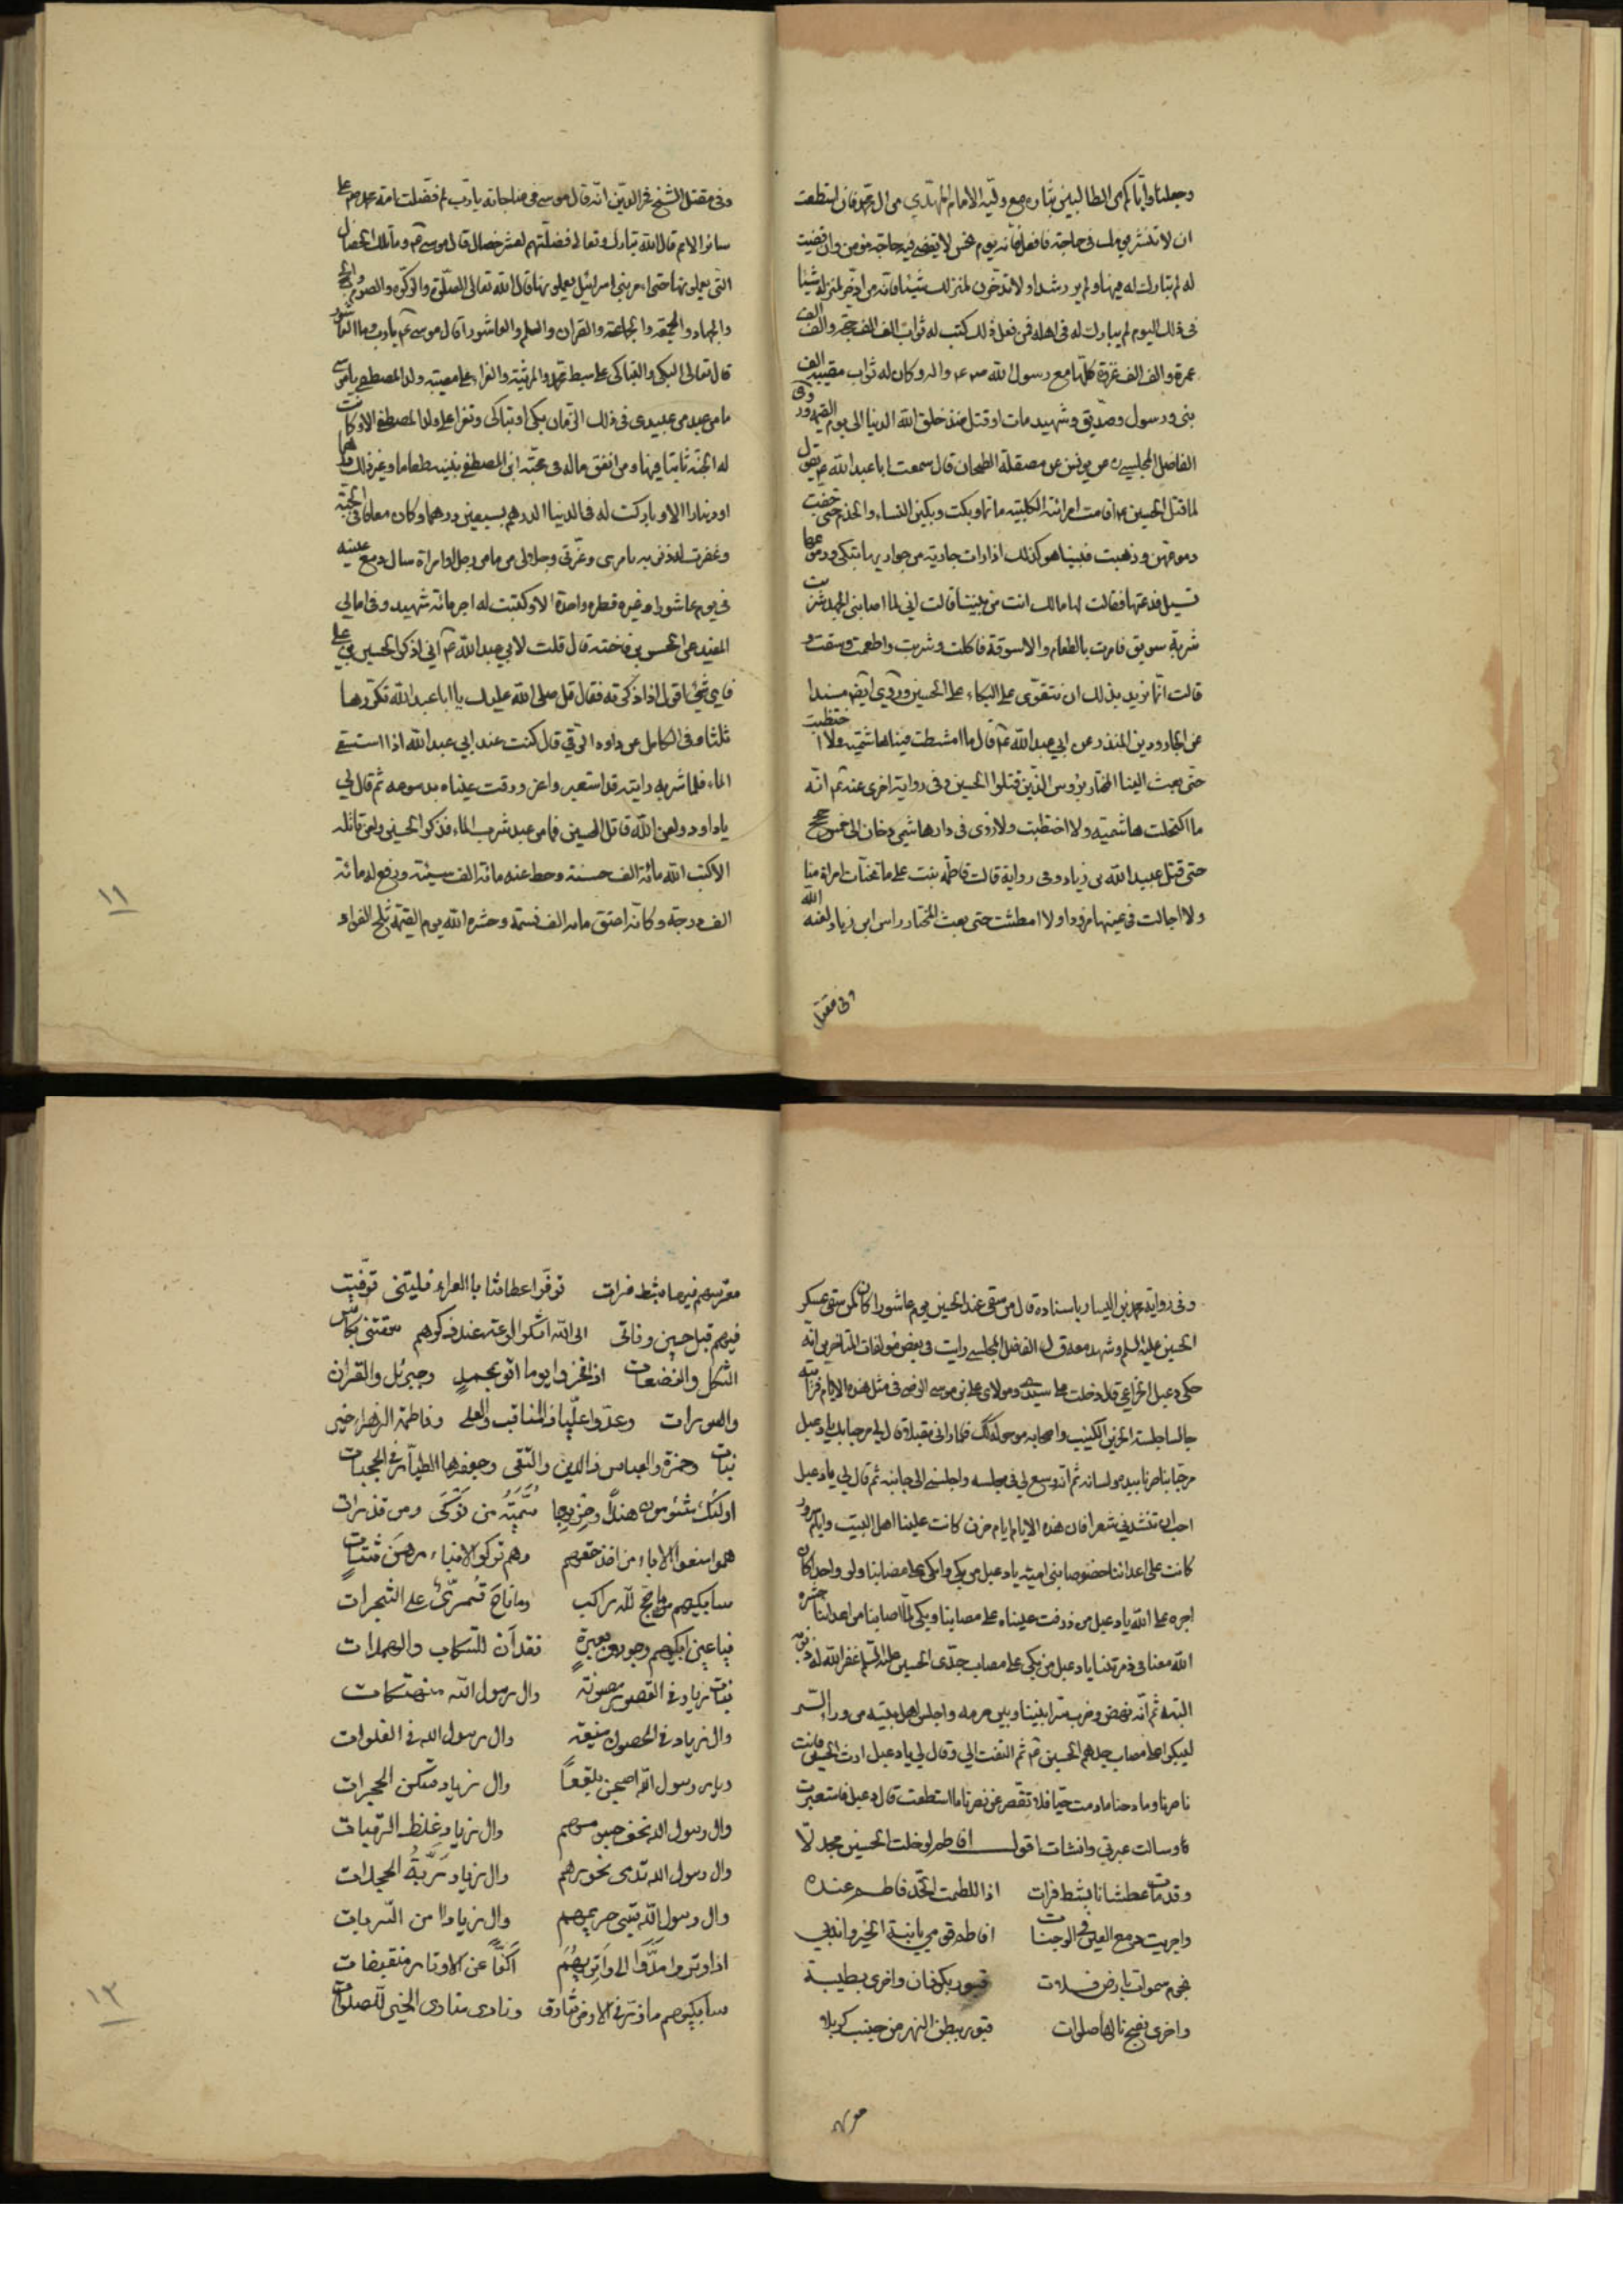 وجعلنا وايّاكم من الطالبين بثاره مع وليّه الامام المهدّي من ال محمد فان استطعت
ان لا تنتشر يومك فى حاجة فافعل فانّه يوم نحس لا يقضى فيه حاجة مؤمن وان قضيت
له لم يبارك له فيها ولم ير رشدا ولا تدّخرن لمنزلك شيئا فانّه من ادّخر لمنزله شيئا
فى ذلك اليوم لم يبارك له فى اهله فمن فعل ذلك كتب له ثواب الف الف حجّة والف الف
عمرة والف الف غزوة كلّها مع رسول الله ص واله وكان له ثواب مصيبة الف
نبى ورسول وصدّيق وشهيد مات او قتل منذ خلق الله الدنيا الى يوم القيمة وروى
الفاضل المجلسي ره عن يونس عن مصقلة الطحان قال سمعت ابا عبد الله ع يقول
لما قتل الحسين ع اقامت امرائته الكلبيّة ماتما وبكت وبكين النساء والخدم حتى جفّت
دموعهن وذهبت فبينا هو كذلك اذا رات جارية من جواريها تبكى ودموعها
تسيل فدعتها فقالت لها مالك انت من بيننا قالت انى لما اصابنى الجهد شربت
شربة سويق فامرت بالطعام والاسوقة فاكلت وشربت واطعمت وسقت و
قالت انّما نريد بذلك ان نتقوّى على البكاء على الحسين وروى ايضا مسندا
عن الجارود بن المنذر عن ابي عبد الله ع قال ما امتشطت فينا هاشميّة ولا اختضبت
حتّى بعث الينا المختار برؤس الذّين قتلوا الحسين وفى رواية اخرى عنه ع انّه
ما اكتحلت هاشميّة ولا اختضبت ولا رؤى فى دار هاشمي دخان الى خمس حجج
حتى قتل عبيد الله بن زياد وفى رواية قالت فاطمة بنت على ما تحنّات امراة منا
ولا اجالت فى عينها مرودا ولا امتشطت حتى بعث المختار راس ابن زياد لعنه الله
وفى مقتل
وفى مقتل الشيخ فخر الدّين انّه قال موسى فى مناجاته يا ربّ لم فضّلت امّة محمد ص على
سائر الامم قال الله تبارك وتعالى فضلّتهم لعشر خصال قال موسى ع وما تلك الخصال
التّى يعملونها حتى امر بنى اسرائيل يعملونها قال الله تعالى الصلّوة والزكوّة والصوم والحج
والجهاد والجمعة والجماعة والقران والعلم والعاشورا قال موسى ع يا رب وما العاشور
قال تعالى البكى والتباكى على سبط محمّد والمرثية والعزاء على مصيبة ولد المصطفى يا موسى
ما من عبد من عبيدى فى ذلك الزّمان بكى او تباكى وتعزا على ولد المصطفى الا وكانت
له الجنّة ثابتا فيها ومن انفق ماله فى محبّة ابن المصطفى بنبيه طعاما وغير ذلك درهما
او دينارا الا وباركت له فى الدنيا الدرهم بسبعين درهما وكان معافا فى الجنّة
وغفرت له ذنوبه يا موسى وعزّتى وجلالى من ما من رجل او امراة سال دمع عينيه
فى يوم عاشورا وغيره قطره واحدة الا وكتبت له اجر مائة شهيد وفى امالى
المفيد عن الحسين بن فاخته قال قلت لابي عبد الله ع انّي اذكر الحسين بن على
فاي شئ اقول اذا ذكرته فقال قل صلى الله عليك يا ابا عبد الله تكرّرها
ثلثا وفى الكامل عن داود الرقي قال كنت عند ابي عبد الله اذا استسقى
الماء فلما شربه رايته قد استعبر واغرورقت عيناه بدموعه ثم قال لي
يا داود ولعن اللّه قاتل الحسين فما من عبد شرب الماء فذكر الحسين ولعن قاتله
الا كتب الله مائة الف حسنة وحط عنه مائة الف سيئة ورفع له مائة
الف درجة وكانّه اعتق مائه الف نسمة وحشره الله يوم القيمة ثلج الفواد
١١
وفى رواية محمد بن اليسار باسناده قال من سقى عند الحسين يوم عاشورا كان كمن سقى عسكر
الحسين عليه السلم وشهد معه قال الفاضل المجلسى رايت فى بعض مؤلفات المتاخرين انّه
حكى دعبل الخزاعي قال دخلت على سيّدى ومولاى على بن موسى الرضا فى مثل هذه الايام فرايته
جالسا جلسة الحزين الكئيب واصحابه من حوله كذلك فلما رانى مقبلا قال لي مرحبا بك يا دعبل
مرحبا بناصرنا بيده ولسانه ثم انّه وسع لي فى مجلسه واجلسنى الى جانبه ثم قال لي يا دعبل
احب ان تنشدنى شعرا فان هذه الايام ايام حزن كانت علينا اهل البيت وايام سرور
كانت على اعدائنا خصوصا بنى اميّة يا دعبل من بكى وابكى على مصابنا ولو واحدا كان
اجره على اللّه يا دعبل من ذرفت عيناه على مصابنا وبكى لما اصابنا من اعدائنا حشره
الله معنا فى زمرتنا يا دعبل من بكى على مصاب جدّى الحسين عليه السّلم غفر الله له ذنوبه
البتة ثم انّه نهض وضرب سترا بيننا وبين حرمه واجلس اهل بيته من وراء السّتر
ليبكوا على مصاب جدهم الحسين ع ثم التفت الي وقال لي يا دعبل ارث الحسين فانت
ناصرنا ومادحنا مادمت حيّا فلا تقصر عن نصرنا ما استطعت قال دعبل فاستعبرت
وسالت عبرتي وانشات اقول افاطم لو خلت الحسين مجدلاّ
وقد مات عطشانا بشط فرات اذا للطمت الخدّ فاطم عنده
واجريت دمع العين فى الوجنات افاطم قومي يا ابنة الخير واندبي
نجوم سموات بارض فلات قبور بكوفان واخرى بطيبة
واخرى بفخ نالها صلوات قبور ببطن النهر من جنب كربلا
معرسهم
معرسهم فيها بشط فرات توفّوا عطاشا بالعراء فليتنى توفّيت
فيهم قبل حين وفاتى الى الله اشكو لوعة عند ذكرهم سقتنى بكاس
الثكل والفضعات اذا فخروا يوما اتو بمحمدٍ وجبرئل والقران
والسورات وعدّوا عليّا ذا المناقب والعلى وفاطمة الزهراء خير
بنات وحمزة والعباس ذا الدين والتقى وجعفرها الطيّار فى الحجبات
اولئك مشئومون هنداً وحزبها سُمَيّةُ من نَوْكَى ومن قذرات
هموا منعوا الاباء من اخذ حقهم وهم تركوا الابناء رهن شتات
سابكيهم ما حج لله راكب وما ناح قُمرّىٌ على الشجرات
فيا عين ابكيهم وجودى بعبرةٍ فقد آن للتسكاب والهملات
بنات زياد فى القصور مصونة وال رسول اللّه منهتكات
وال زياد فى الحصون منيعة وال رسول الله فى الفلوات
ديار رسول اللّه اصبحن بلقعاً وال زياد تسكن الحجرات
وال رسول الله نحف جسومهم وال زياد غلظ الرقبات
وال رسول الله تدمى نحورهم وال زياد رَبّةُ الحجلات
وال رسول اللّه تسبى حريمهم وال زياد امن السّربات
اذا وتروا مَدّوا الى واتريهم اكفّاً عن الاوتار منقبضات
سابكيهم ما ذرّ فى الارض شارق ونادى منادى الخير للصلوات
١٣